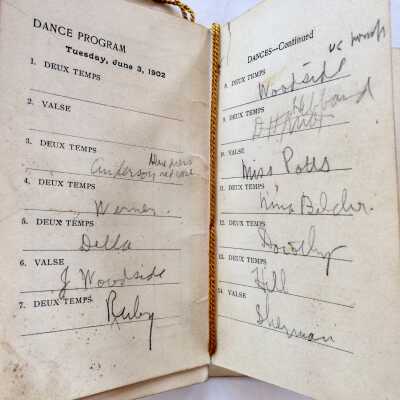 DANCE PROGRAM
Tuesday, June 3, 1902
1. DEUX TEMPS
2. VALSE
3. DEUX TEMPS
Anderson red rose
4. DEUX TEMPS
Werner.
5. DEUX TEMPS
Della
6. VALSE
J Woodside
7. DEUX TEMPS
Ruby
DANCES—Continued
8. DEUX TEMPS
Woodside
9. DEUX TEMPS
Hebbard
10. VALSE
Miss Potts
11. DEUX TEMPS
Nina Belcher.
12. DEUX TEMPS
Dorothy
13. DEUX TEMPS
Hill
14. VALSE
Sherman